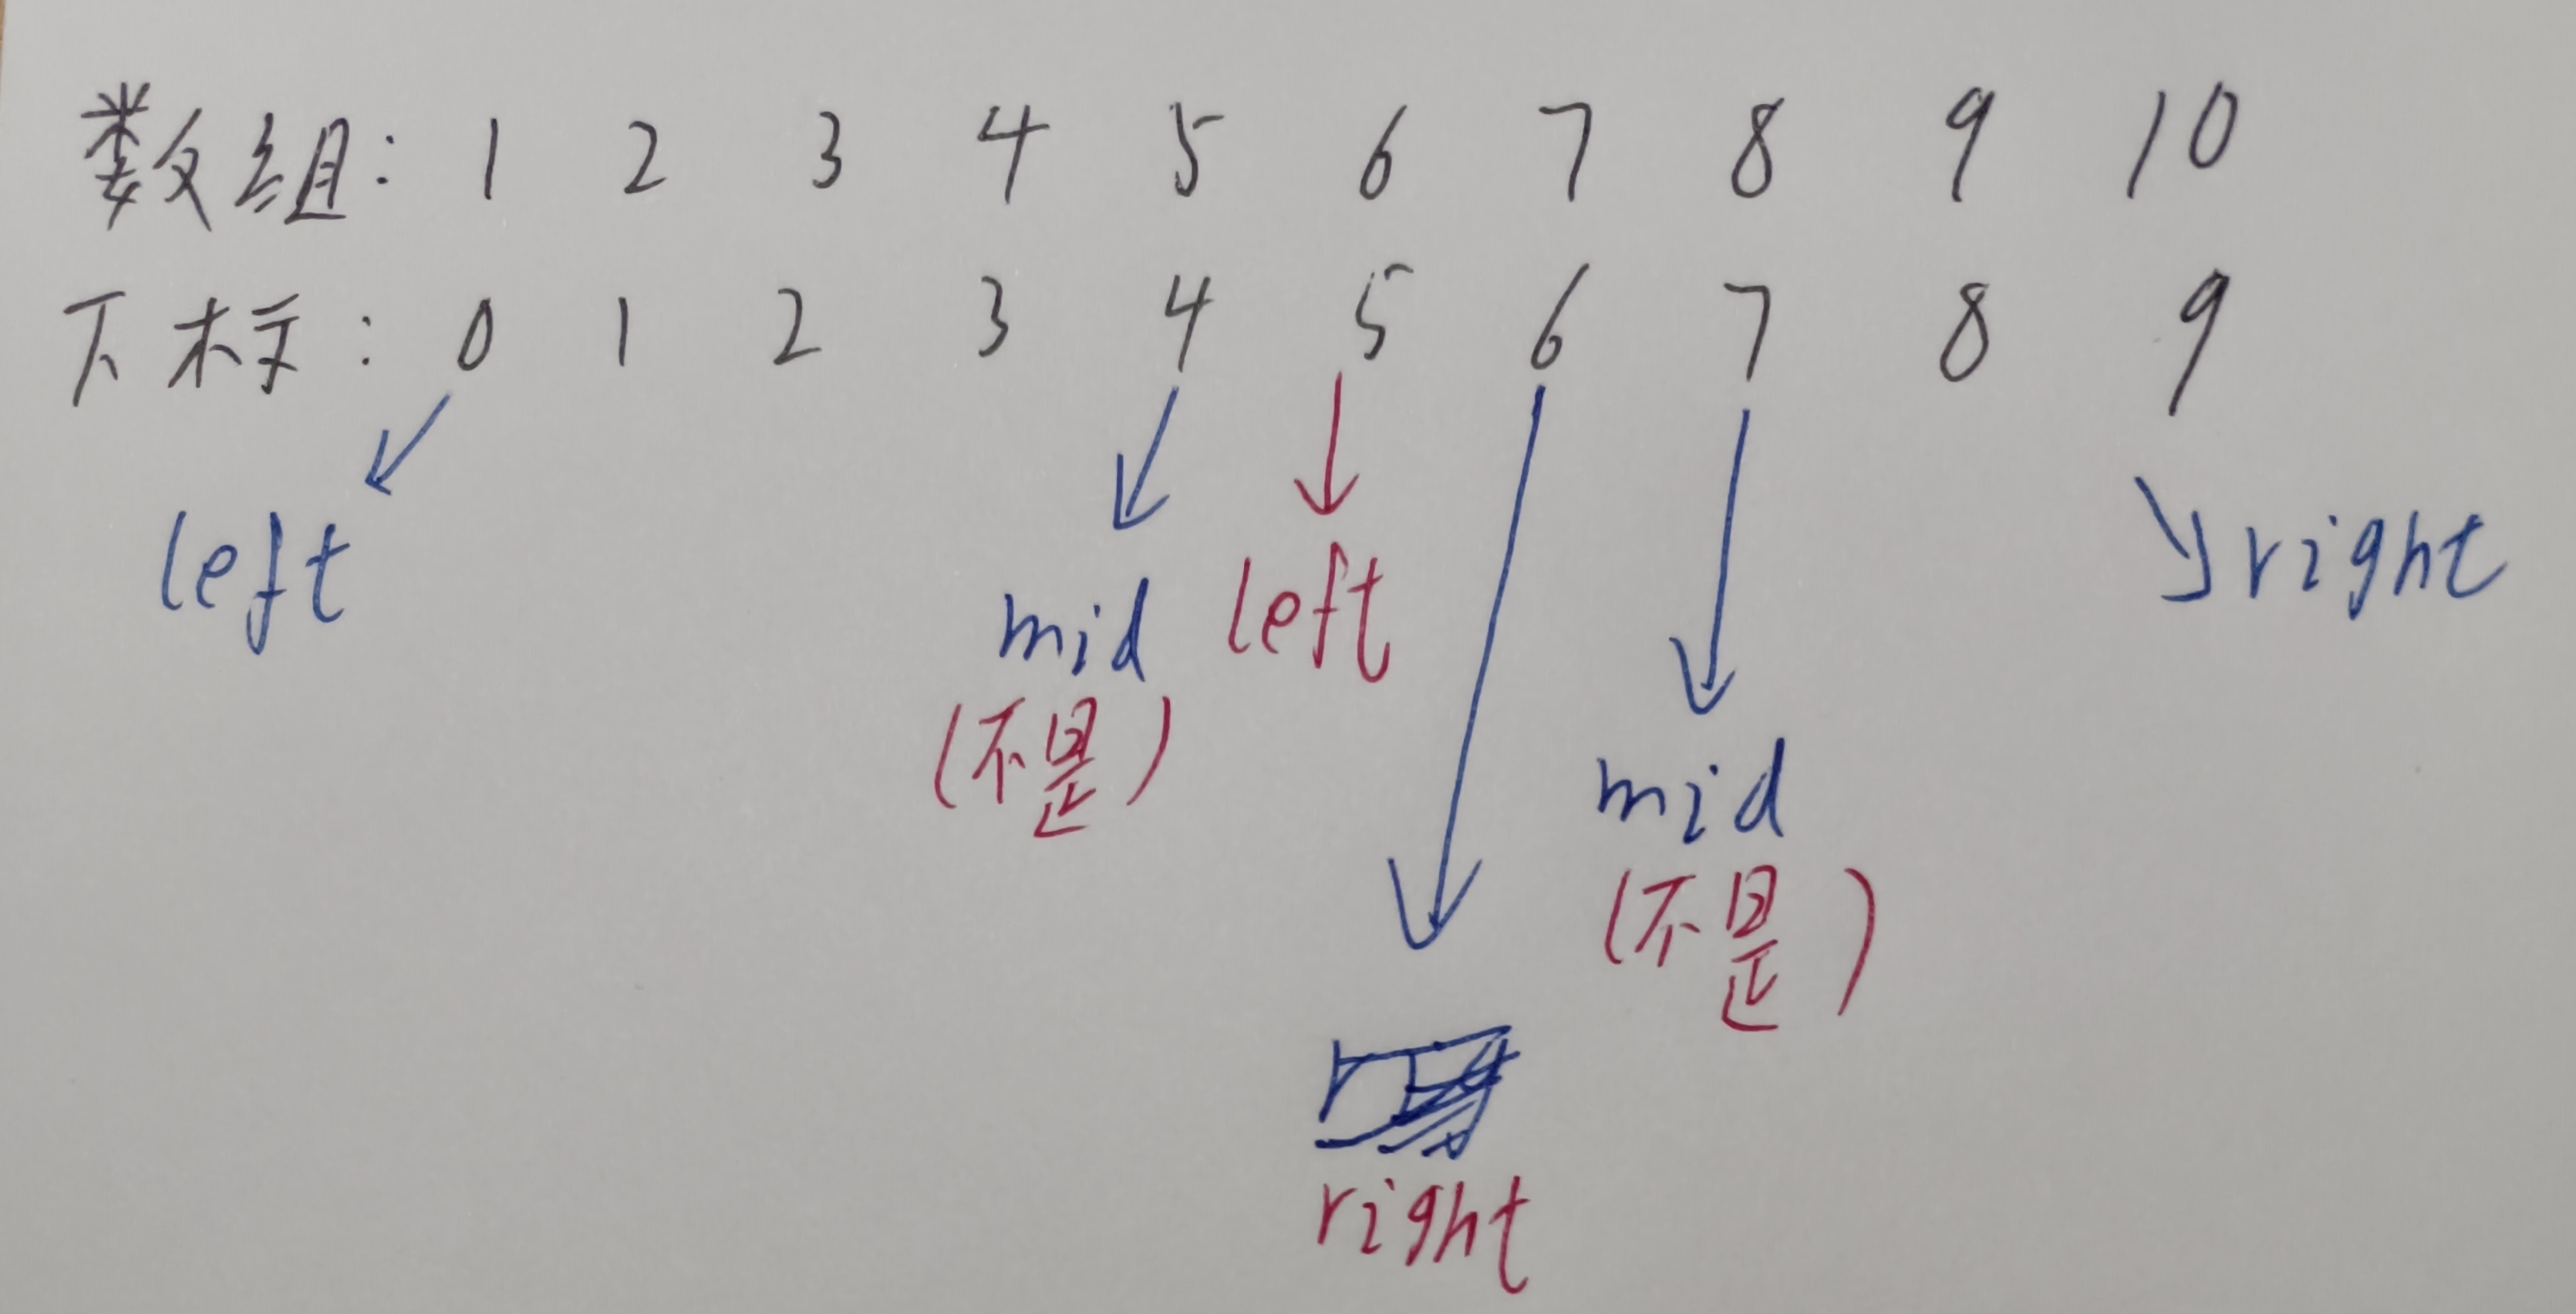 数组: 1 2 3 4 5 6 7 8 9 10
下标: 0 1 2 3 4 5 6 7 8 9
left mid left right
(不是) mid
(不是)
right